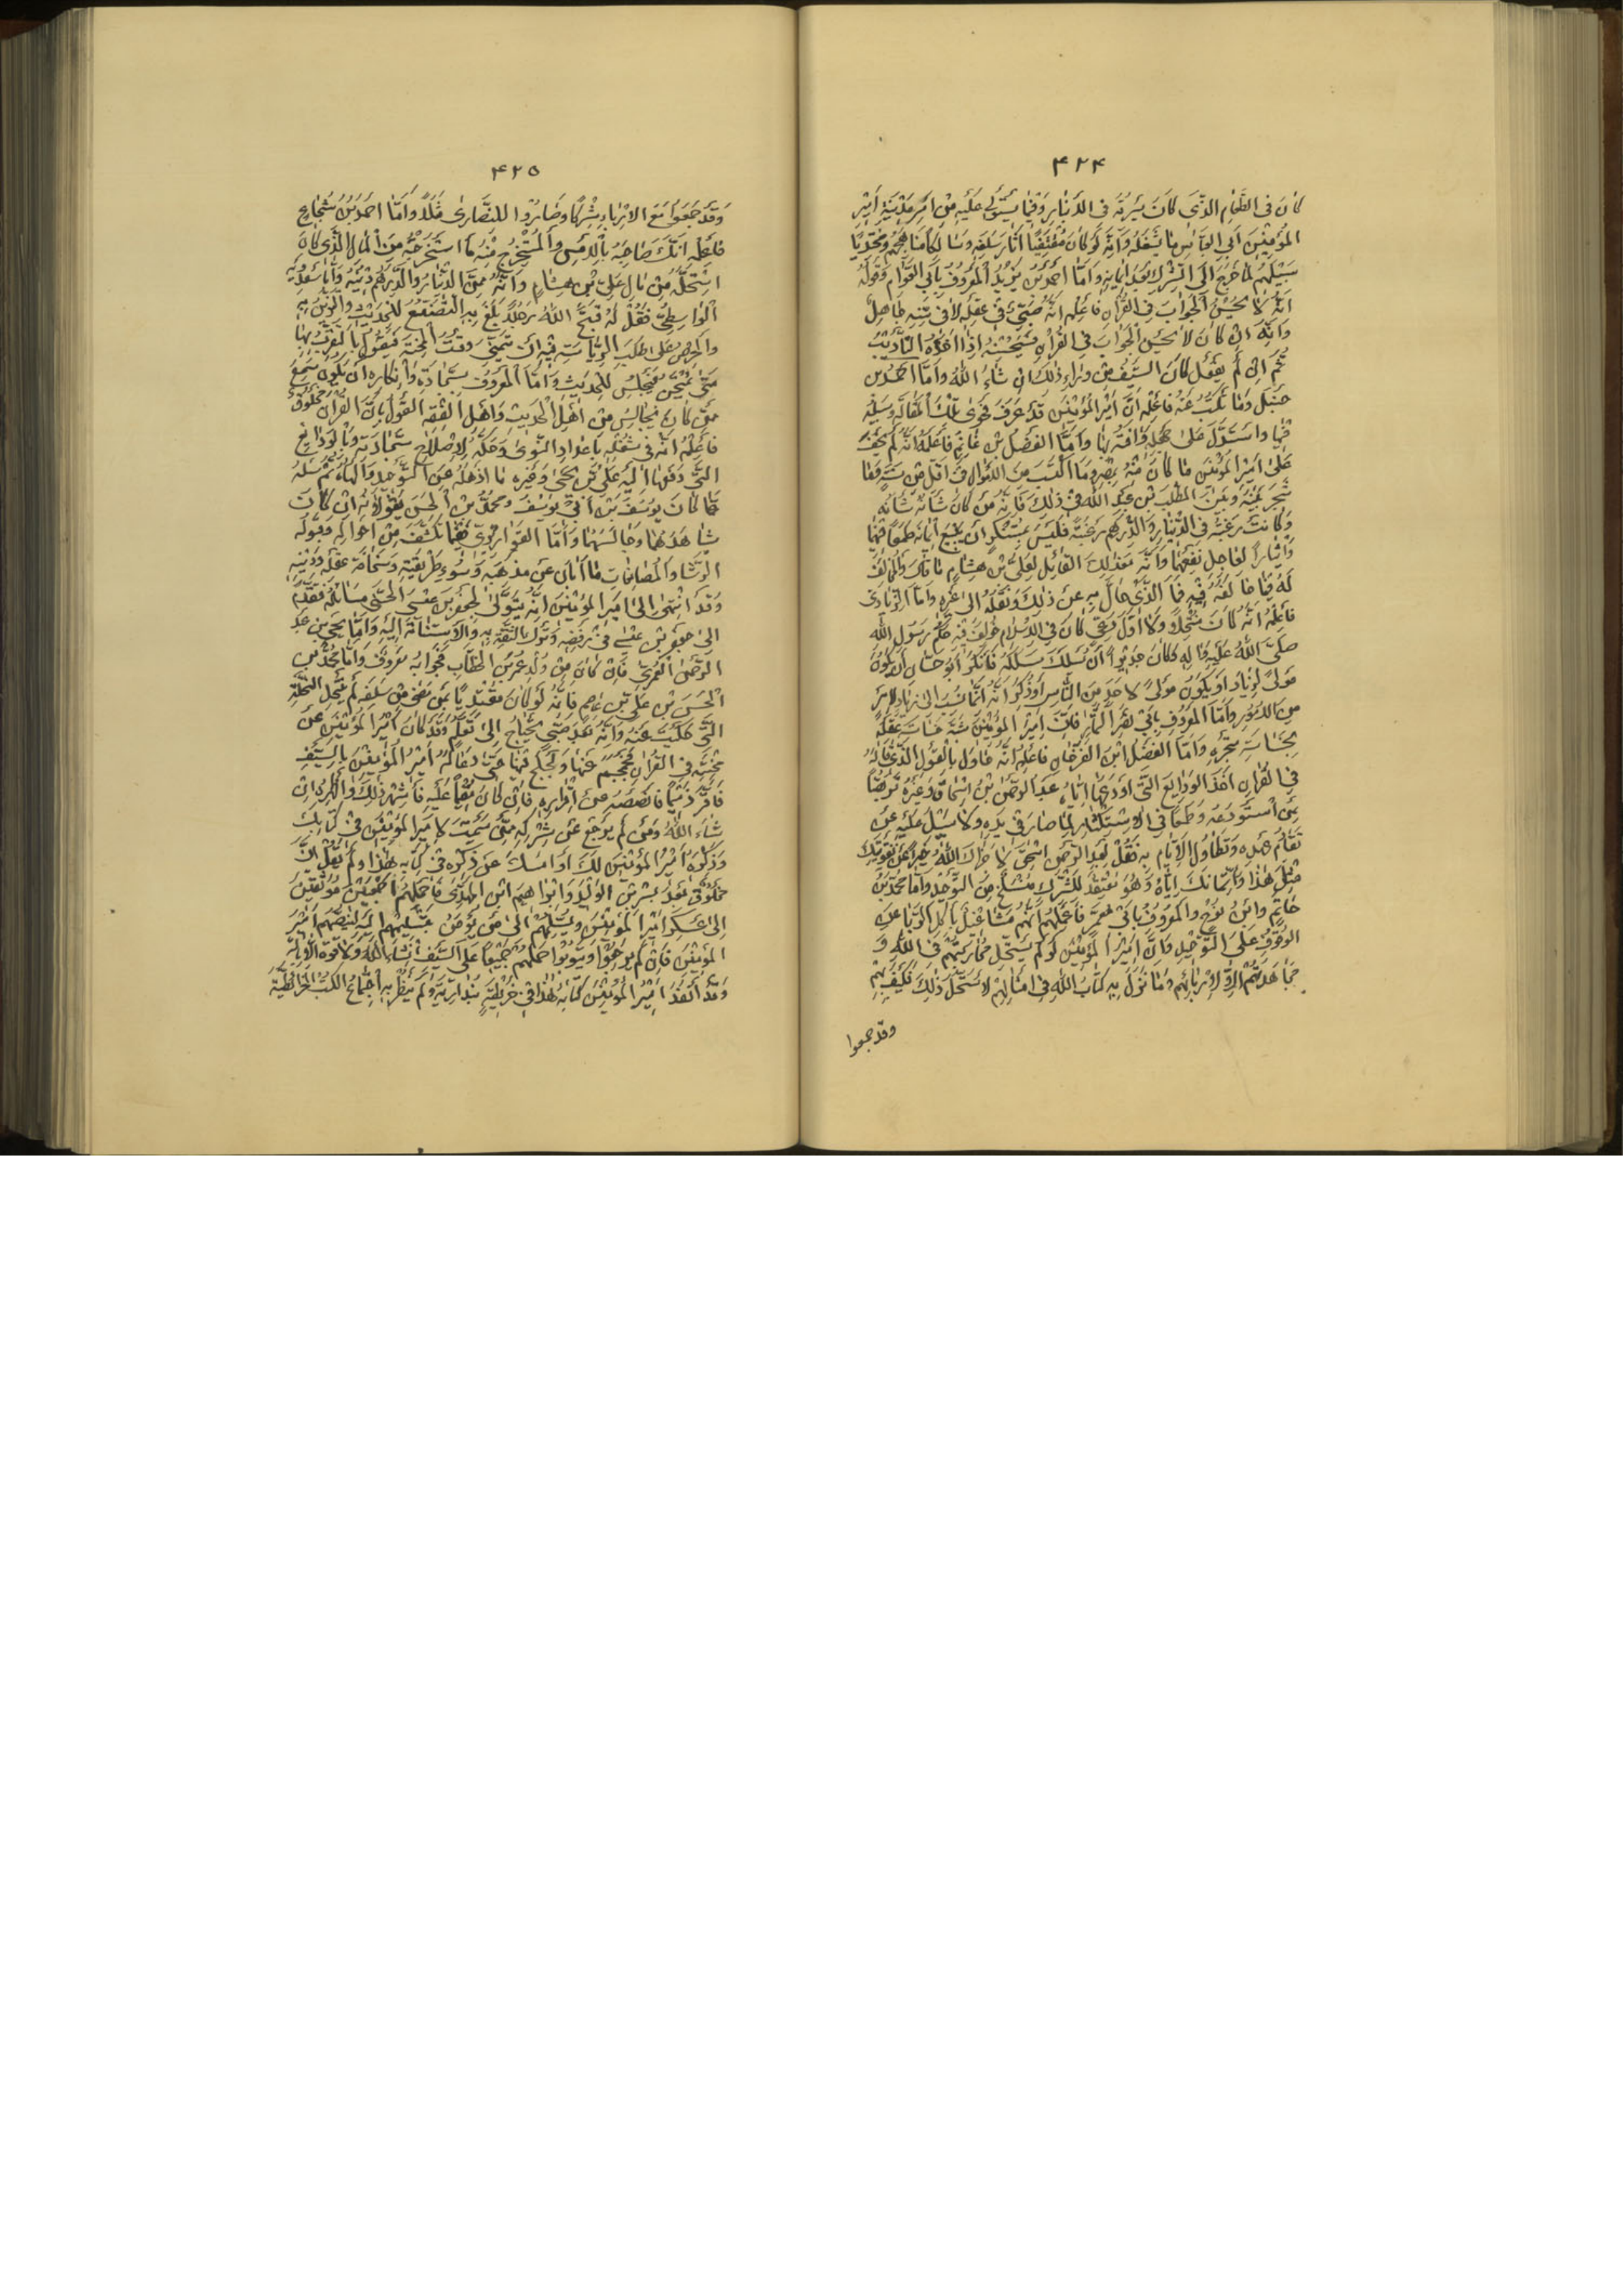 ۴۲۴
كان فى الطعام الذى كان يسرقه فى الانبار وفيما يستولى عليه من امر مدينة امير
المؤمنين ابى العباس ما يشغله وانه لو كان مقتفيا اثار سلفه وسالكا مناهجهم ومحتذيا
سبيلهم لما خرج الى الشرك بعد ايمانه واما احمد بن يزيد المعروف بابى العوام وقوله
انه لا يحسن الجواب فى القران فاعلمه انه صبى فى عقله لا فى سنه جاهل
وانه ان كان لا يحسن الجواب فى القران فسيحسنه اذا اخذه التاديب
ثم ان لم يفعل كان السيف من وراء ذلك ان شاء الله واما احمد بن
حنبل وما تكتب عنه فاعلمه ان امير المؤمنين قد عرف فحوى تلك المقالة وسبيله
فيها واستدل على جهله وافته بها واما الفضل بن غانم فاعلمه انه لم يخف
على امير المؤمنين ما كان منه بمصر وما اكتسب من الاموال فى اقل من سنة وما
شجر بينه وبين المطلب بن عبد الله فى ذلك فانه من كان شانه شانه
وكانت رغبته فى الدينار والدرهم رغبته فليس بمستنكر ان يبيع ايمانه طمعا فيهما
وايثارا لعاجل نفعهما وانه مع ذلك القائل لعلى بن هشام ما قال والمخالف
له فيما خالفه فيه فما الذى حال به عن ذلك ونقله الى غيره واما الزيادى
فاعلمه انه كان منتحلا ولا اول دعى كان فى الاسلام خولف فيه حكم رسول الله
صلى الله عليه واله وكان جديرا ان يسلك مسلكه فانكر ابو حسان ان يكون
مولى لزياد او يكون مولى لاحد من الناس وذكر انه انما نسب الى زياد لامر
من الامور واما المعروف بابى نصر التمار فان امير المؤمنين شبه خساسة عقله
بخساسة متجره واما الفضل ابن الفرخان فاعلمه انه حاول بالقول الذى قاله
فى القران اخذ الودايع التى اودعها اياه عبد الرحمن بن اسحاق وغيره تربصا
بمن استودعه وطمعا فى الاستكثار لما صار فى يده ولا سبيل عليه عن
تقادم عهده وتطاول الايام به فقل لعبد الرحمن اسحق لا جزاك الله خيرا عن تقويتك
مثل هذا وايتمانك اياه وهو معتقد للشرك منسلخ من التوحيد واما محمد بن
حاتم وابن نوح والمعروف بابى معمر فاعلمهم انهم مشاغيل باكل الربا عن
الوقوف على التوحيد وان امير المؤمنين لو لم يستحل محاربتهم فى الله و
مجاهدتهم الا لاربائهم وما نزل به كتاب الله فى امثالهم لاستحل ذلك فكيف بهم
وقد جمعوا
۴۲۵
وقد جمعوا مع الارباء شركا وصاروا للنصارى مثلا واما احمد بن شجاع
فاعلمه انك صاحبه بالامس والمستخرج منه ما استخرجته من المال الذى كان
استحله من مال على بن هشام وانه ممن الدينار والدرهم دينه واما سعدويه
الواسطى فقل له قبح الله رجلا بلغ به التصنع للحديث والتزين به
والحرص على طلب الرياسة فيه ان تمنى وقت المحنة فيقول بالتقرب بها
متى يمتحن فيجلس للحديث واما المعروف بسجادة وانكاره ان يكون سمع
ممن كان يجالس من اهل الحديث واهل الفقه القول بان القران مخلوق
فاعلمه انه فى شغله باعداد النوى وحكه لاصلاح سجادته وبالودايع
التى دفعها اليه على بن يحيى وغيره ما اذهله عن التوحيد والهاه ثم سله
عما كان يوسف بن ابى يوسف ومحمد بن الحسن يقولانه ان كان
شاهدهما وجالسهما واما القواريرى ففيما تكشف من احواله وقبوله
الرشا والمصانعات ما ابان عن مذهبه وسوء طريقته وسخافة عقله ودينه
وقد انتهى الى امير المؤمنين انه يتولى لجعفر بن عيسى الحسنى مسائله فتقدم
الى جعفر بن عيسى فى رفضه وترك الثقة به والاستنامة اليه واما يحيى بن عبد
الرحمن العمرى فان كان من ولد عمر بن الخطاب فجوابه معروف واما محمد بن
الحسن بن على بن عاصم فانه لو كان مقتديا بمن مضى من سلفه لم ينتحل النحلة
التى حكيت عنه وانه بعد صبى يحتاج الى تعلم وقد كان امير المؤمنين عن
محنته فى القران فجمجم عنها ولجلج فيها حتى دعا له امير المؤمنين بالسيف
فاقر ذميما فانصصه عن اقراره فان كان مقيما عليه فاشهر ذلك واظهره ان
شاء الله ومن لم يرجع عن شركه ممن سميت لامير المؤمنين فى كتابك
وذكره امير المؤمنين لك او امسك عن ذكره فى كتابه هذا ولم يقل ان
مخلوق بعد بشر بن الوليد وابراهيم ابن المهدى فاحملهم اجمعين موثقين
الى عسكر امير المؤمنين ويسلمهم الى من يؤمن بتسليمهم اليه لينصهم امير
المؤمنين فان لم يرجعوا ويتوبوا حملهم جميعا على السيف انشاء الله ولا قوة الا بالله
وقد انفذ امير المؤمنين كتابه هذا فى خريطة بندارية ولم ينظر به اجتماع الكتب الخرائطية